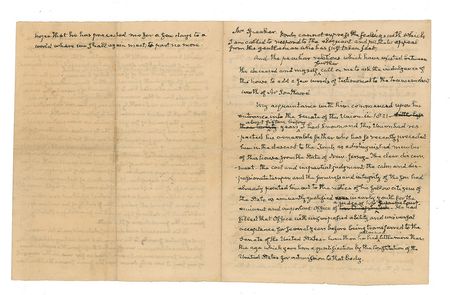 hope that he has preceded me for a few days to a
world where we shall again meet, to part no more
Mr Speaker. Words cannot express the feelings with which
I am called to respond to the eloquent and pathetic appeal
from the gentleman who has just taken seat.
And the peculiar relations which have existed between
further
the deceased and myself, call on me to ask the indulgence of
the house to add a few words of testimonial to the transcendent
worth of Mr Southard.
My acquaintance with him commenced upon his
entrance into the Senate of the Union in 1821
about fifteen before
years, I had known and this Union had respected
his venerable father who has so recently preceded
him in the descent to the Tomb, as a distinguished member
of this House from the State of New Jersey. The clear discernment
the cool and impartial judgment the calm and dispassionate
temper and the firmness and integrity of the Son had
already pointed him out to the notice of his fellow citizens of
the State as eminently qualified in early youth for the
eminent and important office of a Judge of the Supreme Court. He had
filled that Office with unqualified ability and universal
acceptance for several years before being transferred to the
Senate of the United States
the age which you hand qualification by the Constitution of the
United States for admission to that body.